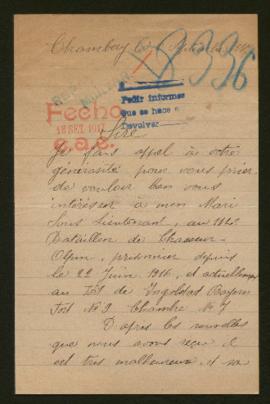 Chambery
8336
Pedir informes
que se hace a
devolver
Fecho
18 SET. 1917
Sire
Je fais appel à votre
générosité pour vous prier
de vouloir bien vous
intéresser à mon Mari
Sous Lieutenant, au
Bataillon de Chasseur
Alpin, prisonnier depuis
le 22 Juin 1916, et actuellement
au Fort de Ingolstadt Bayern
Fort No 9 Chambre No 7
D'après les nouvelles
que nous avons reçu il
est très malheureux, et sa